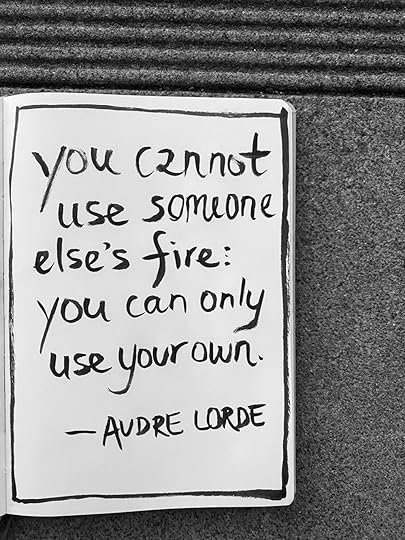 you cannot
use someone
else's fire:
you can only
use your own.
—AUDRE LORDE